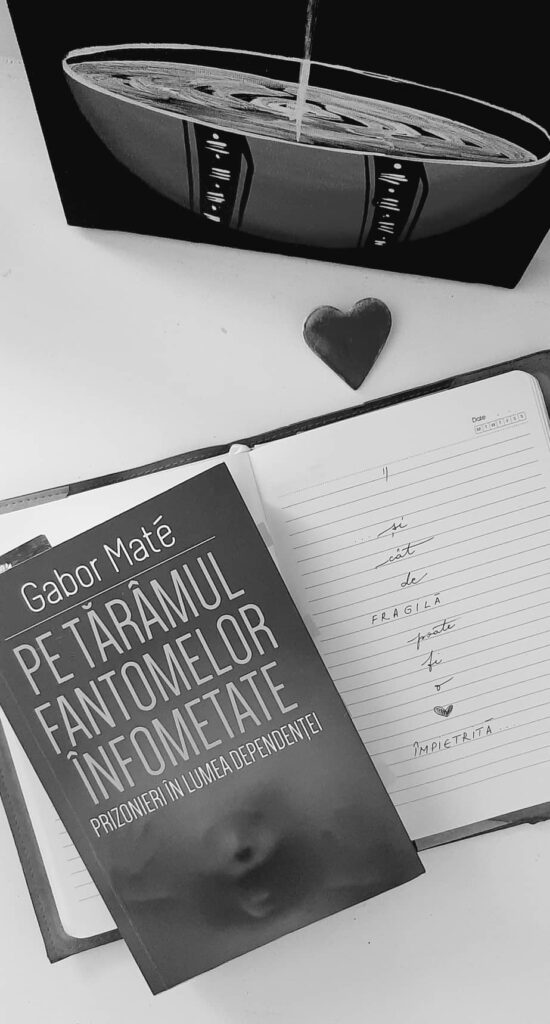 Date
M T W T F S S
"
și
cât
de
FRAGILĂ
poate
fi
o
ÎMPIETRITĂ...
Gabor Maté
PE TĂRÂMUL
FANTOMELOR
ÎNFOMETATE
PRIZONIERI ÎN LUMEA DEPENDENȚEI